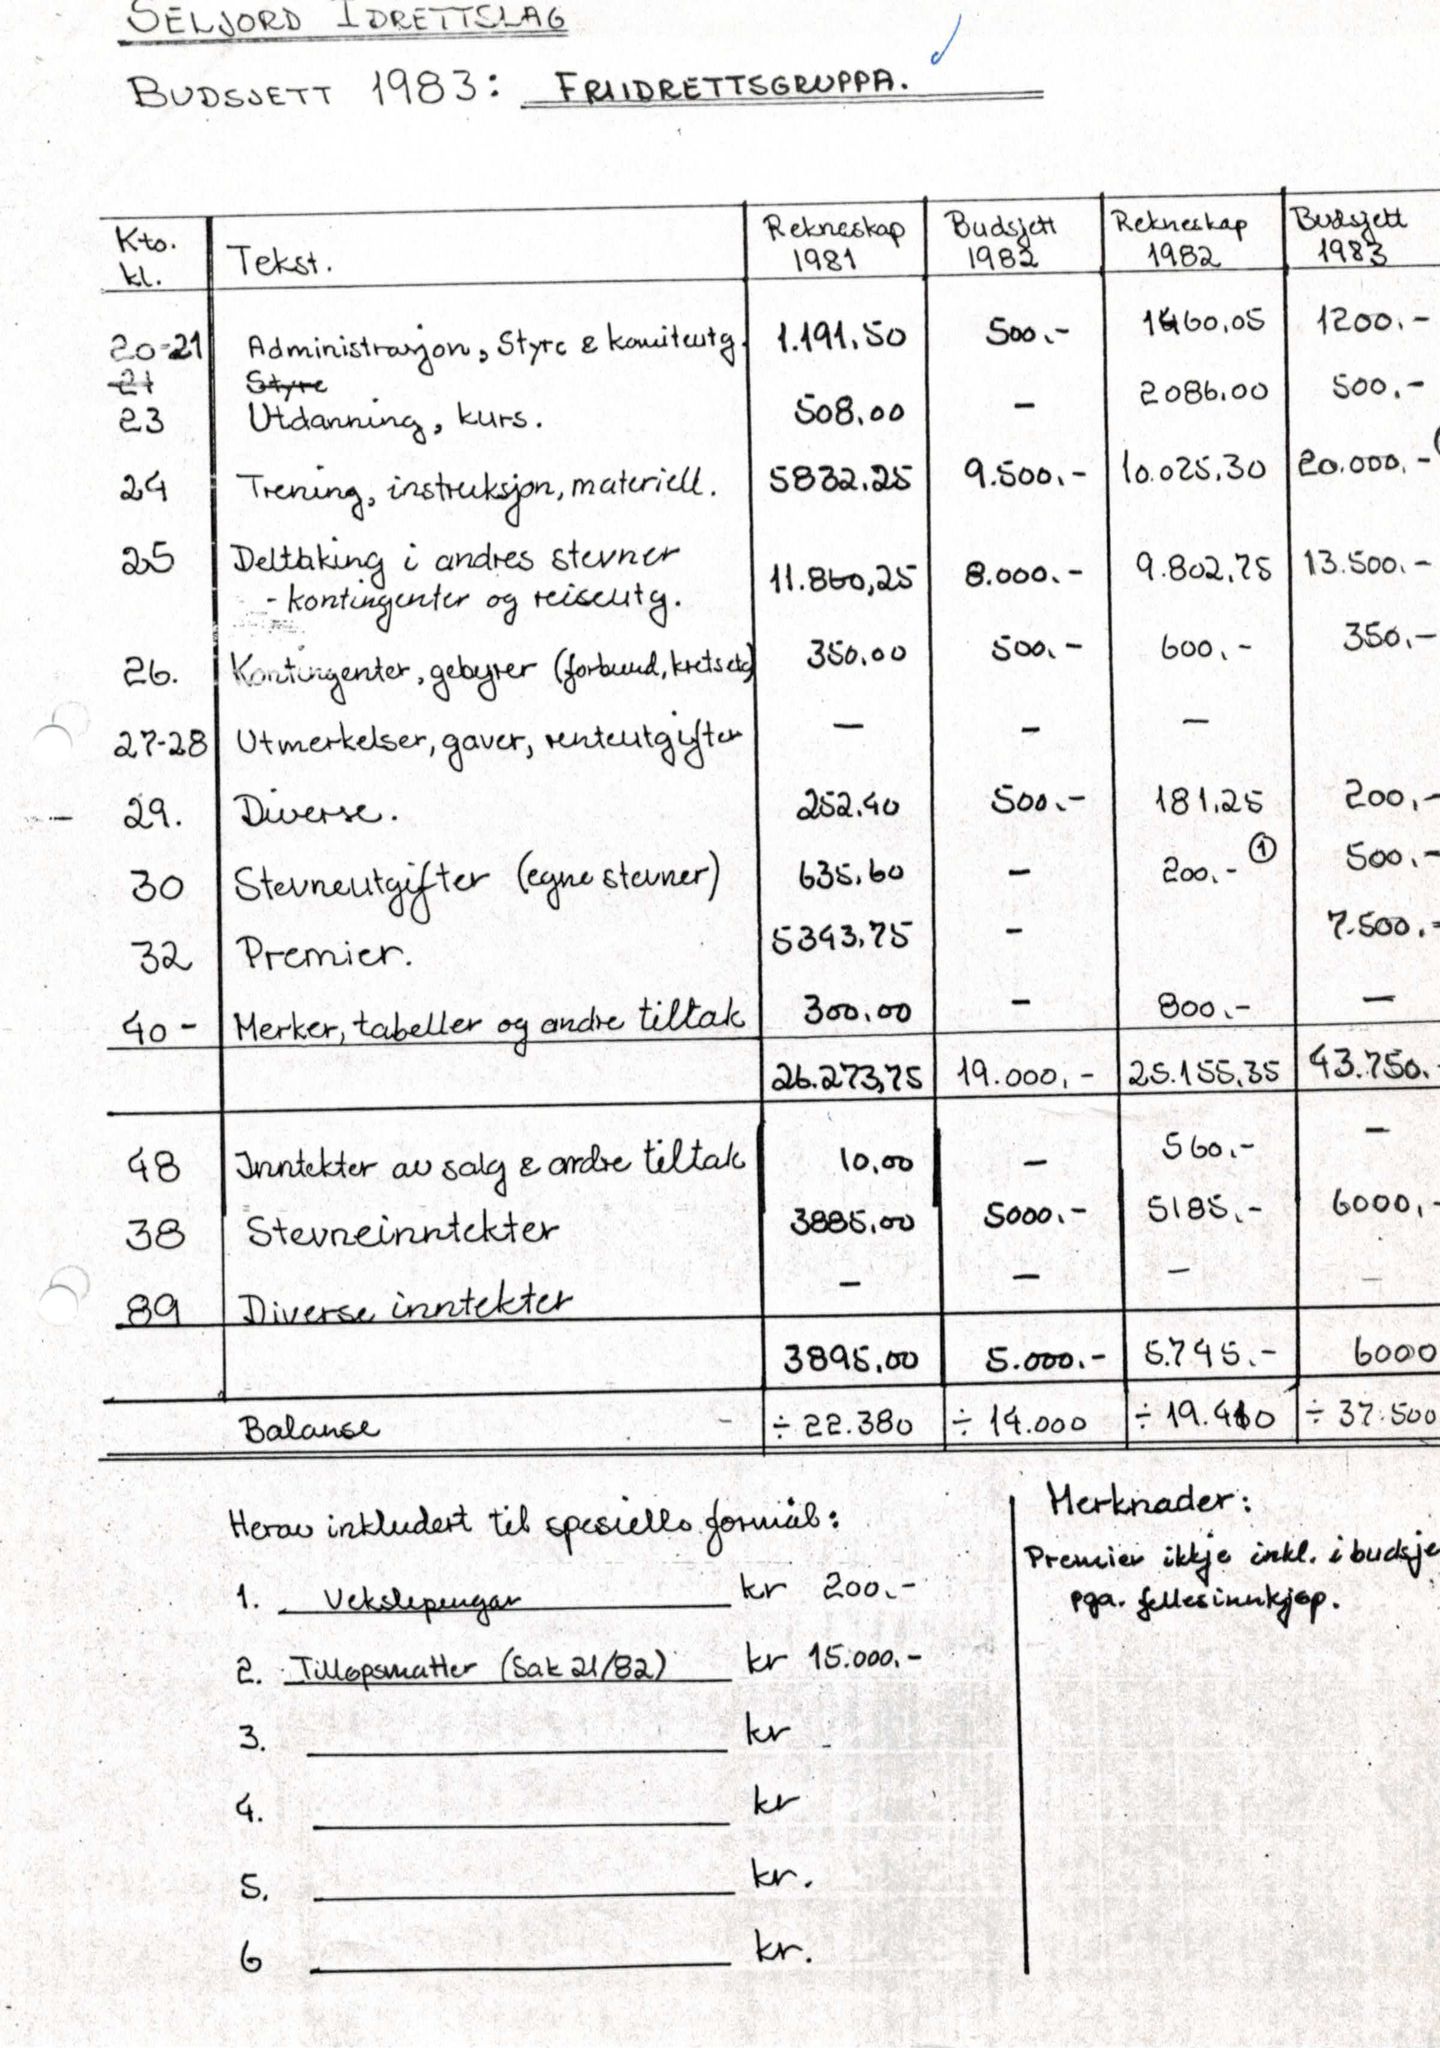 SELJORD IDRETTSLAG
BUDSJETT 1983: FRIIDRETTSGRUPPA.
Kto. kl. Tekst. Rekneskap 1981 Budsjett 1982 Rekneskap 1982 Budsjett 1983
20-21 Administrasjon, Styre & komiteutg. 1.191,50 500.- 1460,05 1200.-
21 Styre
23 Utdanning, kurs. 508,00 - 2086,00 500.-
24 Trening, instruksjon, materiell. 5832,25 9.500.- 10.025,30 20.000.-
25 Deltaking i andres stevner
- kontingenter og reiseutg. 11.860,25 8.000.- 9.802,75 13.500.-
26. Kontingenter, gebyrer (forbund, krets etc) 350,00 500.- 600.- 350.-
27-28 Utmerkelser, gaver, renteutgifter - - -
29. Diverse. 252,40 500.- 181,25 200.-
30 Stevneutgifter (egne stevner) 635,60 - 200.- ① 500.-
32 Premier. 5343,75 - 7.500.-
40- Merker, tabeller og andre tiltak 300,00 - 800.- -
26.273,75 19.000,- 25.155,35 43.750.-
48 Inntekter av salg & andre tiltak 10,00 - 560.- -
38 Stevneinntekter 3885,00 5000.- 5185.- 6000.-
89 Diverse inntekter - - - -
3895,00 5.000.- 5.745.- 6000
Balanse ÷ 22.380 ÷ 14.000 ÷ 19.410 ÷ 37.500
Herav inkludert til spesielle formål:
1. Vekslepengar kr 200.-
2. Tilløpsmatter (Sak 21/82) kr 15.000.-
3. kr
4. kr
5. kr.
6 kr.
Merknader:
Premier ikkje inkl. i budsje
pga. fellesinnkjøp.